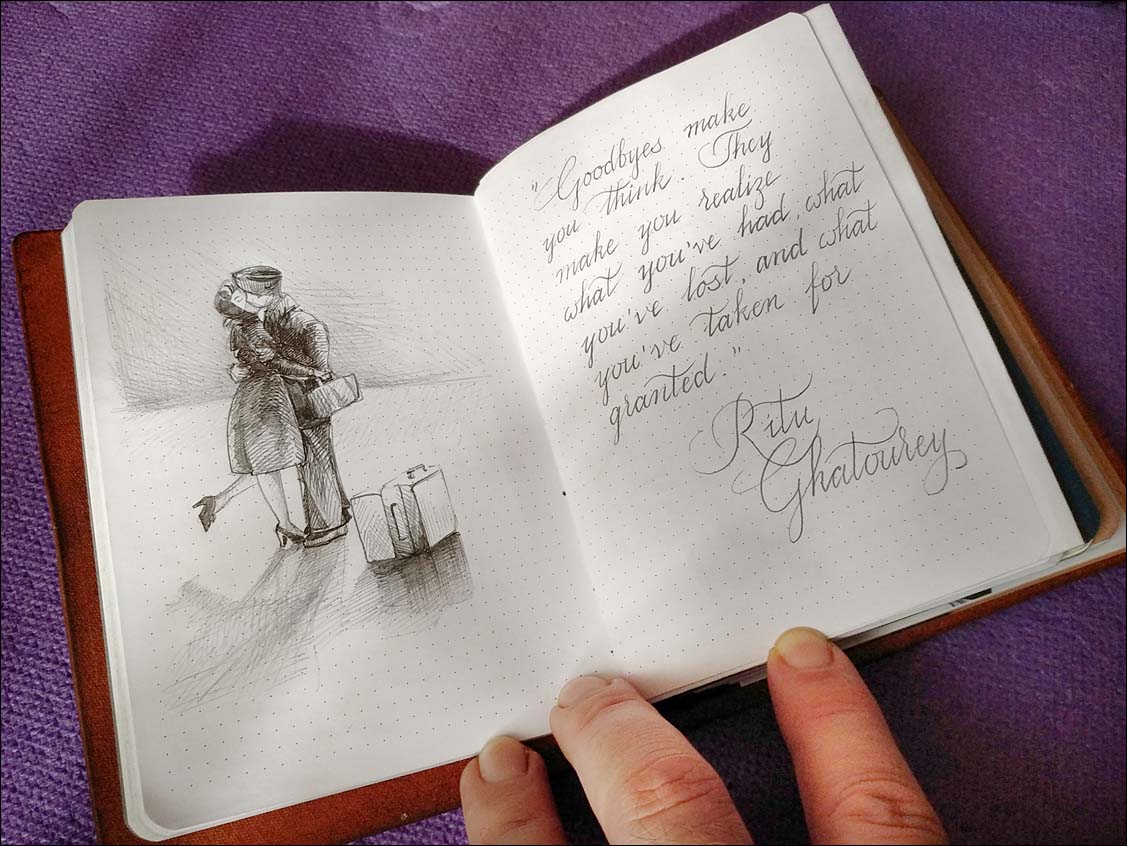 "Goodbyes make
you think. They
make you realize
what you've had, what
you've lost, and what
you've taken for
granted."
Ritu
Ghatourey